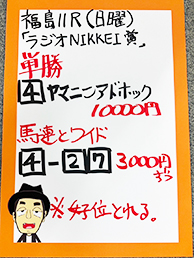 福島11R(日曜)
「ラジオNIKKEI賞」
単勝
4 ヤマニンアドホック
10000円
馬連とワイド
4-2 7 3000円
ずつ
※好位とれる。